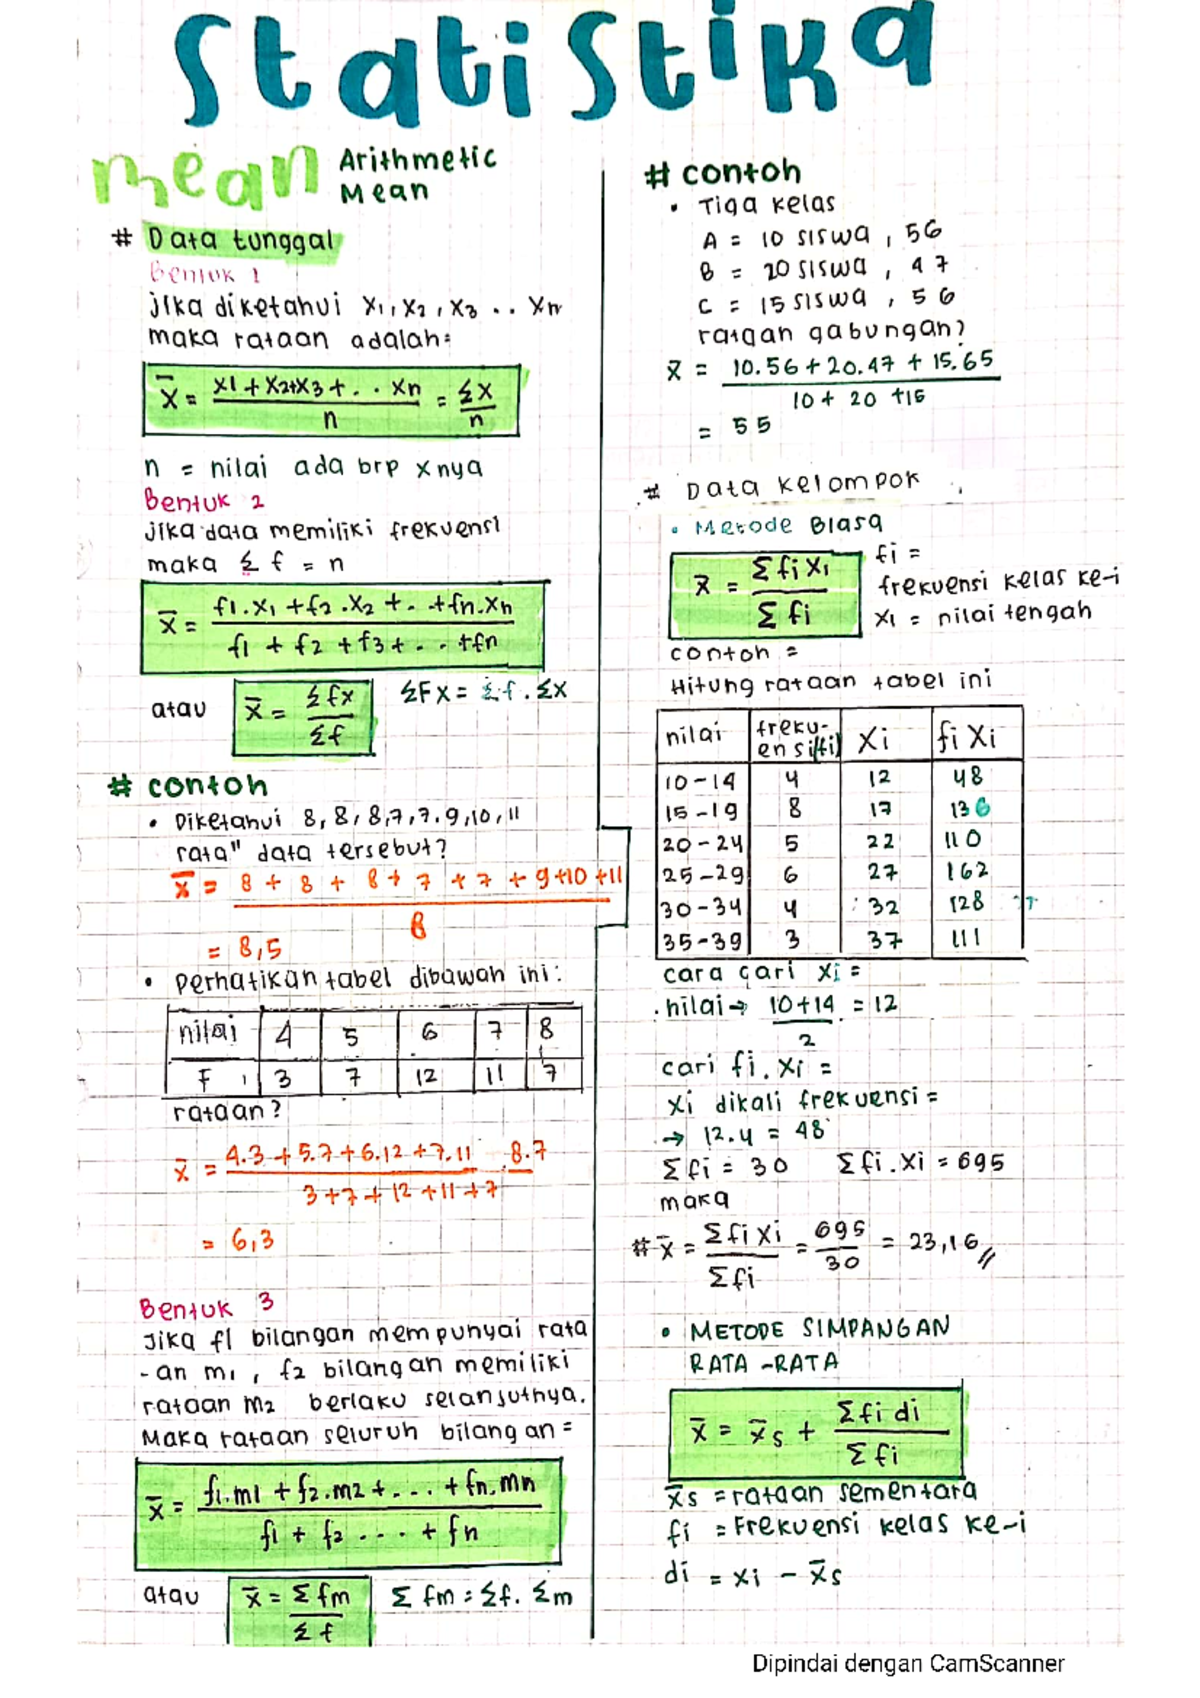 Statistika
mean Arithmetic Mean
# Data tunggal
Bentuk 1
jika diketahui x1, x2, x3 .. xn
maka rataan adalah:
x̄ = x1 + x2 + x3 + . . xn / n = Σx / n
n = nilai ada brp xnya
Bentuk 2
jika data memiliki frekuensi
maka Σ f = n
x̄ = f1.x1 + f2.x2 + . . + fn.xn / f1 + f2 + f3 + . . + fn
atau x̄ = Σfx / Σf ΣFx = Σf . Σx
# contoh
• Diketahui 8, 8, 8, 7, 7. 9, 10, 11
rata" data tersebut?
x̄ = 8 + 8 + 8 + 7 + 7 + 9 + 10 + 11 / 8
= 8,5
• perhatikan tabel dibawah ini:
nilai 4 5 6 7 8
F 3 7 12 11 7
rataan?
x̄ = 4.3 + 5.7 + 6.12 + 7.11 8.7 / 3 + 7 + 12 + 11 + 7
= 6,3
Bentuk 3
Jika f1 bilangan mempunyai rata
-an m1, f2 bilangan memiliki
rataan m2 berlaku selanjutnya.
Maka rataan seluruh bilangan =
x̄ = f1.m1 + f2.m2 + . . . + fn.mn / f1 + f2 . . . + fn
atau x̄ = Σ fm / Σ f Σ fm = Σf. Σm
# contoh
• Tiga kelas
A = 10 siswa, 56
B = 20 siswa, 47
C = 15 siswa, 56
rataan gabungan?
x̄ = 10.56 + 20.47 + 15.65 / 10 + 20 + 15
= 55
# Data kelompok
• Metode Biasa
x̄ = Σ fi xi / Σ fi
fi =
frekuensi kelas ke-i
xi = nilai tengah
contoh =
Hitung rataan tabel ini
nilai freku-ensi (fi) xi fi xi
10-14 4 12 48
15-19 8 17 136
20-24 5 22 110
25-29 6 27 162
30-34 4 32 128
35-39 3 37 111
cara cari xi =
nilai → 10+14 / 2 = 12
cari fi. xi =
xi dikali frekuensi =
→ 12.4 = 48
Σ fi = 30 Σ fi. xi = 695
maka
# x̄ = Σ fi xi / Σ fi = 695 / 30 = 23,16 //
• METODE SIMPANGAN
RATA-RATA
x̄ = x̄s + Σ fi di / Σ fi
x̄s = rataan sementara
fi = Frekuensi kelas ke-i
di = xi - x̄s
Dipindai dengan CamScanner